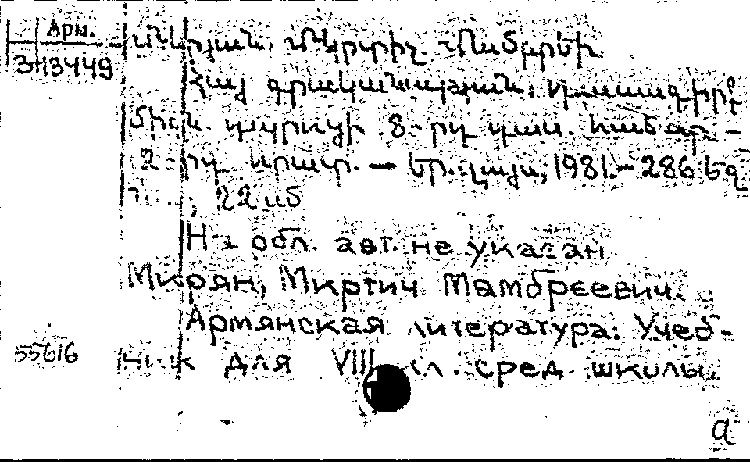 Арм.
3-13449
Մկրյան, Մկրտիչ Մամբրեի
Հայ գրականություն: Դասագիրք
միջն. դպրոցի 8-րդ դաս. համար. -
2-րդ հրատ. — Եր.: Լույս, 1981. - 286 եզ
22 սմ
На обл. авт. не указан
Мкрян, Мкртич Мамбреевич.
Армянская литература: Учеб-
ник для VIII кл. сред. школы.
55616
а